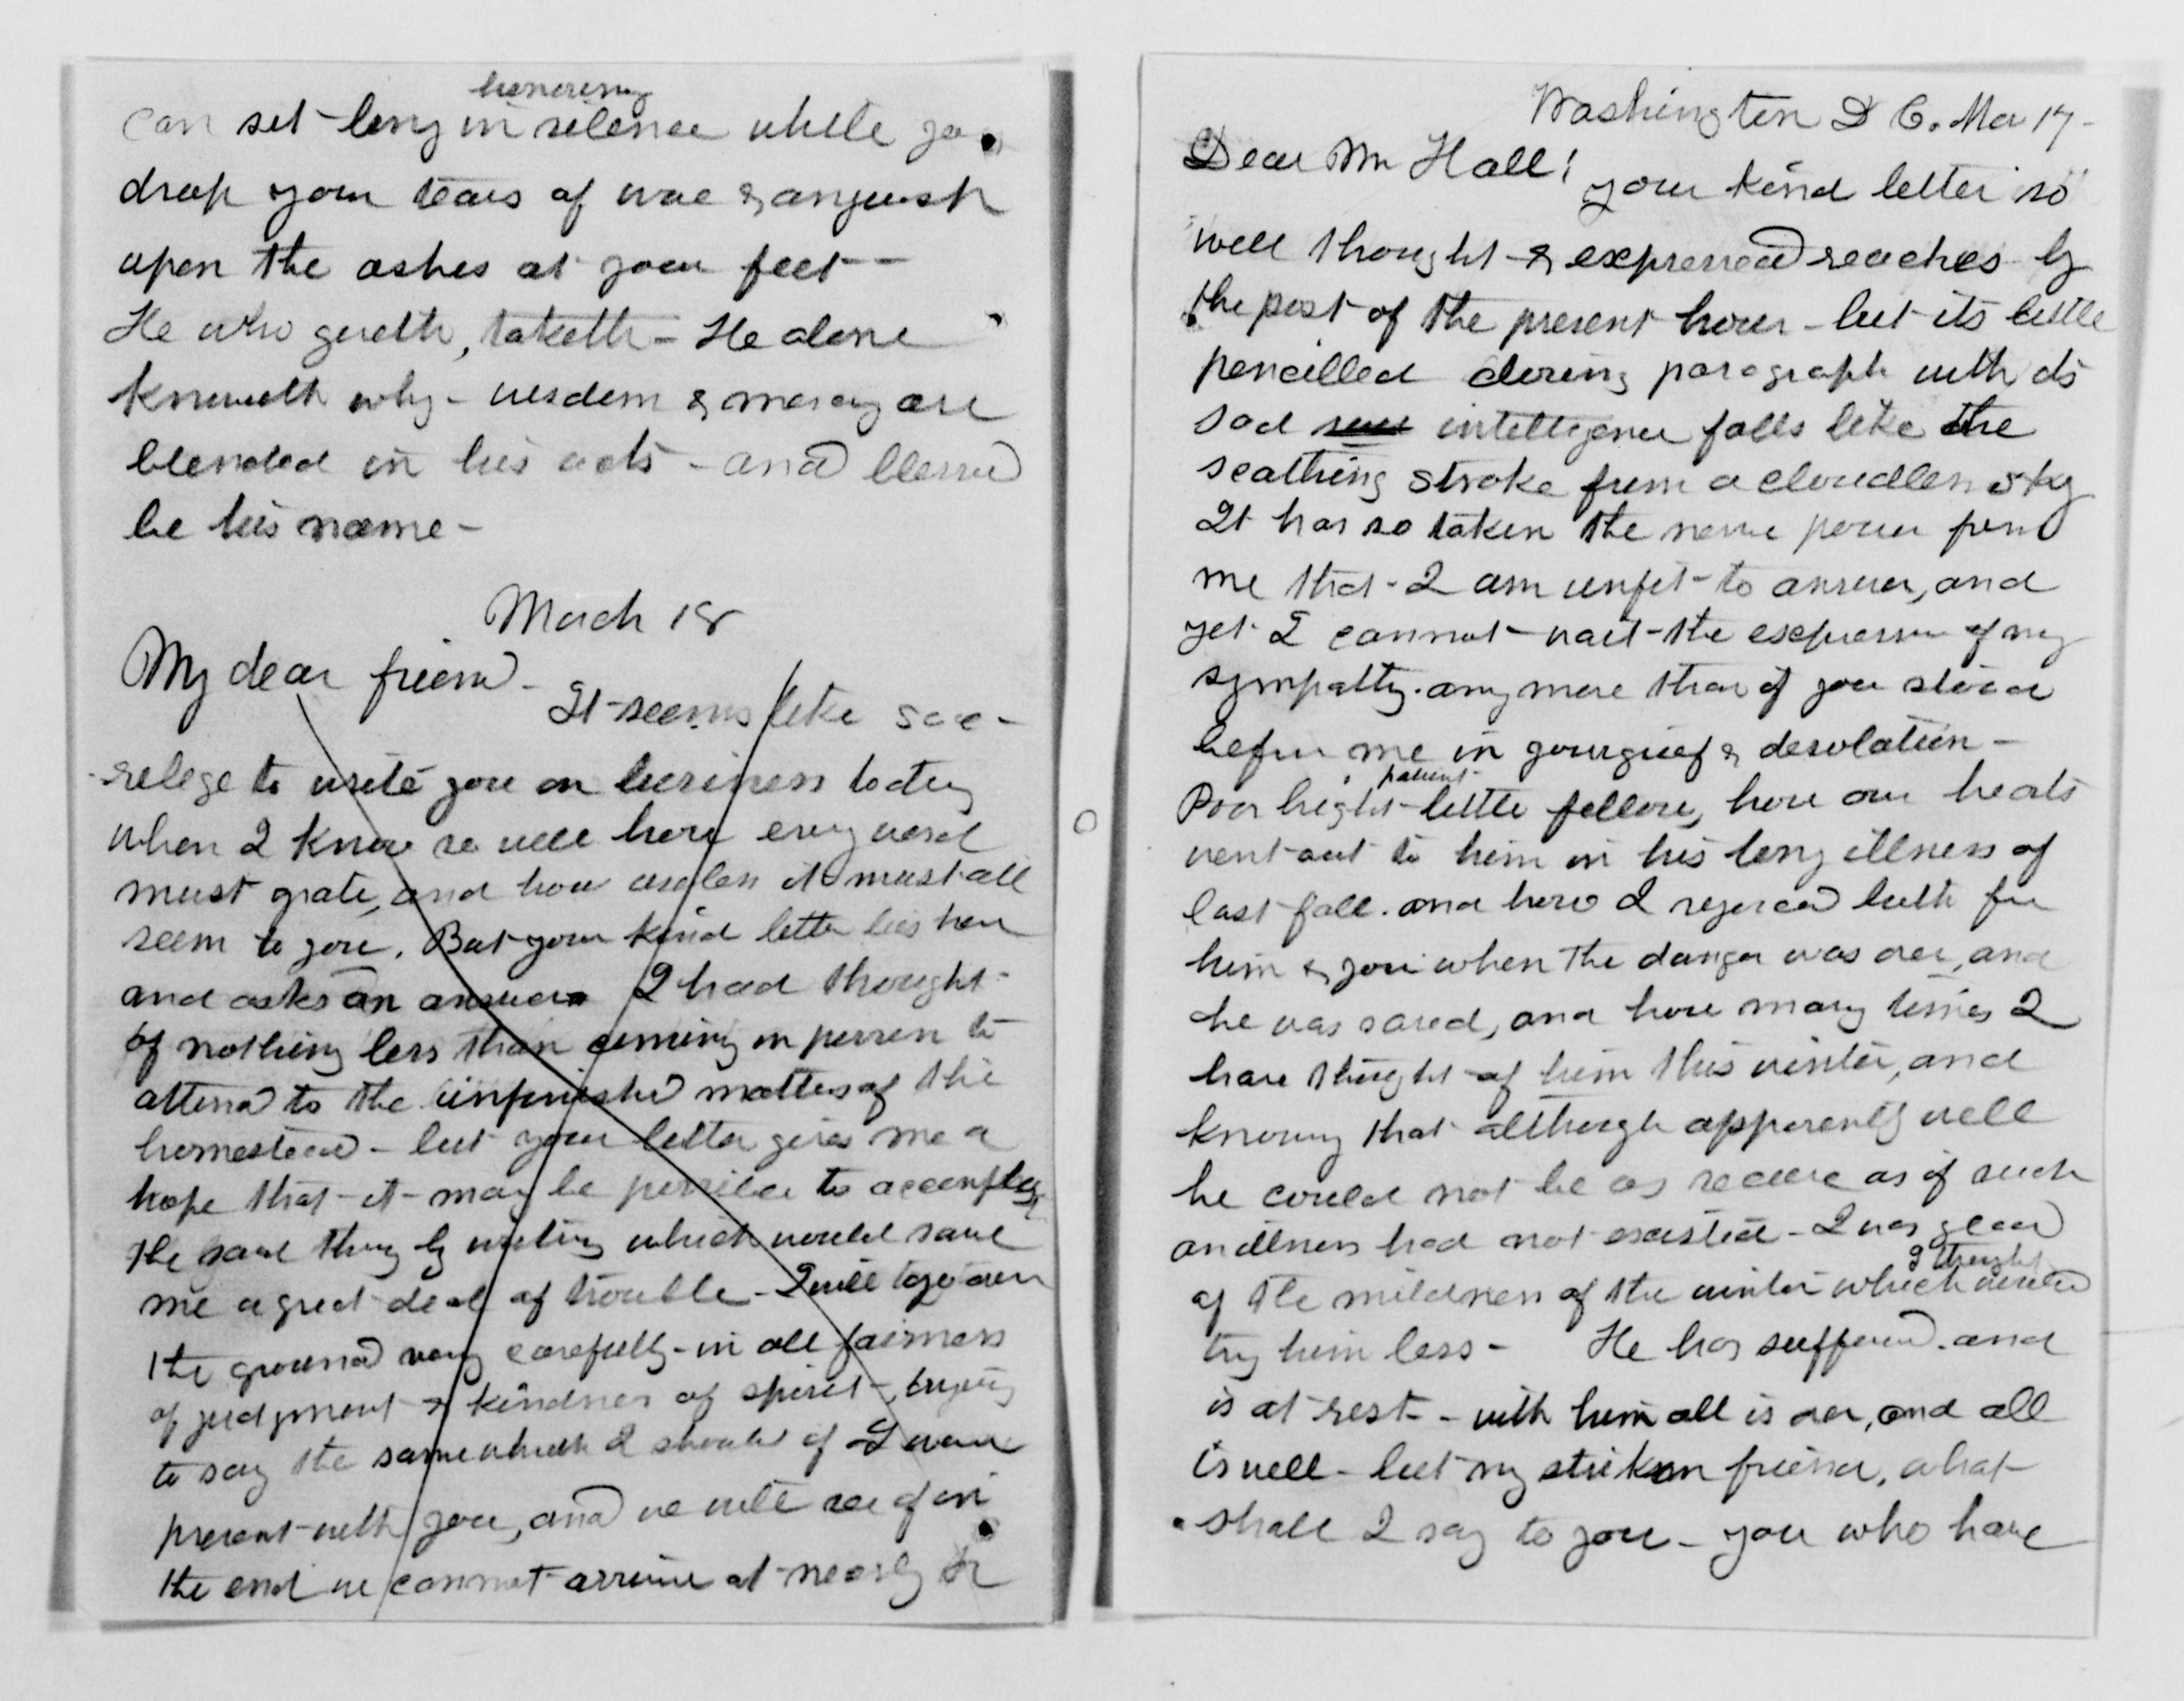 honoring
can sit long in silence while you
drop your tears of woe & anguish
upon the ashes at your feet -
He who giveth, taketh - He alone
knoweth why - wisdom & mercy are
blended in his acts - and blessed
be his name -
March 18
My dear friend -
It seems like sac-
relege to write you on business today
when I know so well how every word
must grate, and how useless it must all
seem to you. But your kind letter lies here
and asks an answer I had thought
of nothing less than coming in person to
attend to the unfinished matters of the
homestead - but your letter gives me a
hope that it may be possible to accomplish
the same thing by writing which would save
me a great deal of trouble - I will to go over
the ground very carefully - in all fairness
of judgment & kindness of spirit - trying
to say the same which I should if I were
present with you, and we will see if in
the end we cannot arrive at nearly the
Washington D C. Mar 17 -
Dear Mr Hall!
your kind letter so
well thought & expressed reaches by
the post of the present hour - but its little
pencilled closing paragraph with its
sad intelligence falls like the
scathing stroke from a cloudless sky
It has so taken the nerve power from
me that I am unfit to answer, and
yet I cannot wait the expression of my
sympathy any more than if you stood
before me in your grief & desolation -
patient
Poor bright little fellow, how our hearts
went out to him in his long illness of
last fall. and how I rejoiced both for
him & you when the danger was over, and
he was saved, and how many times I
have thought of him this winter, and
knowing that although apparently well
he could not be as secure as if such
an illness had not existed - I was glad
I thought
of the mildness of the winter which would
try him less - He has suffered. and
is at rest - with him all is over, and all
is well - but my striken friend, what
shall I say to you - you who have